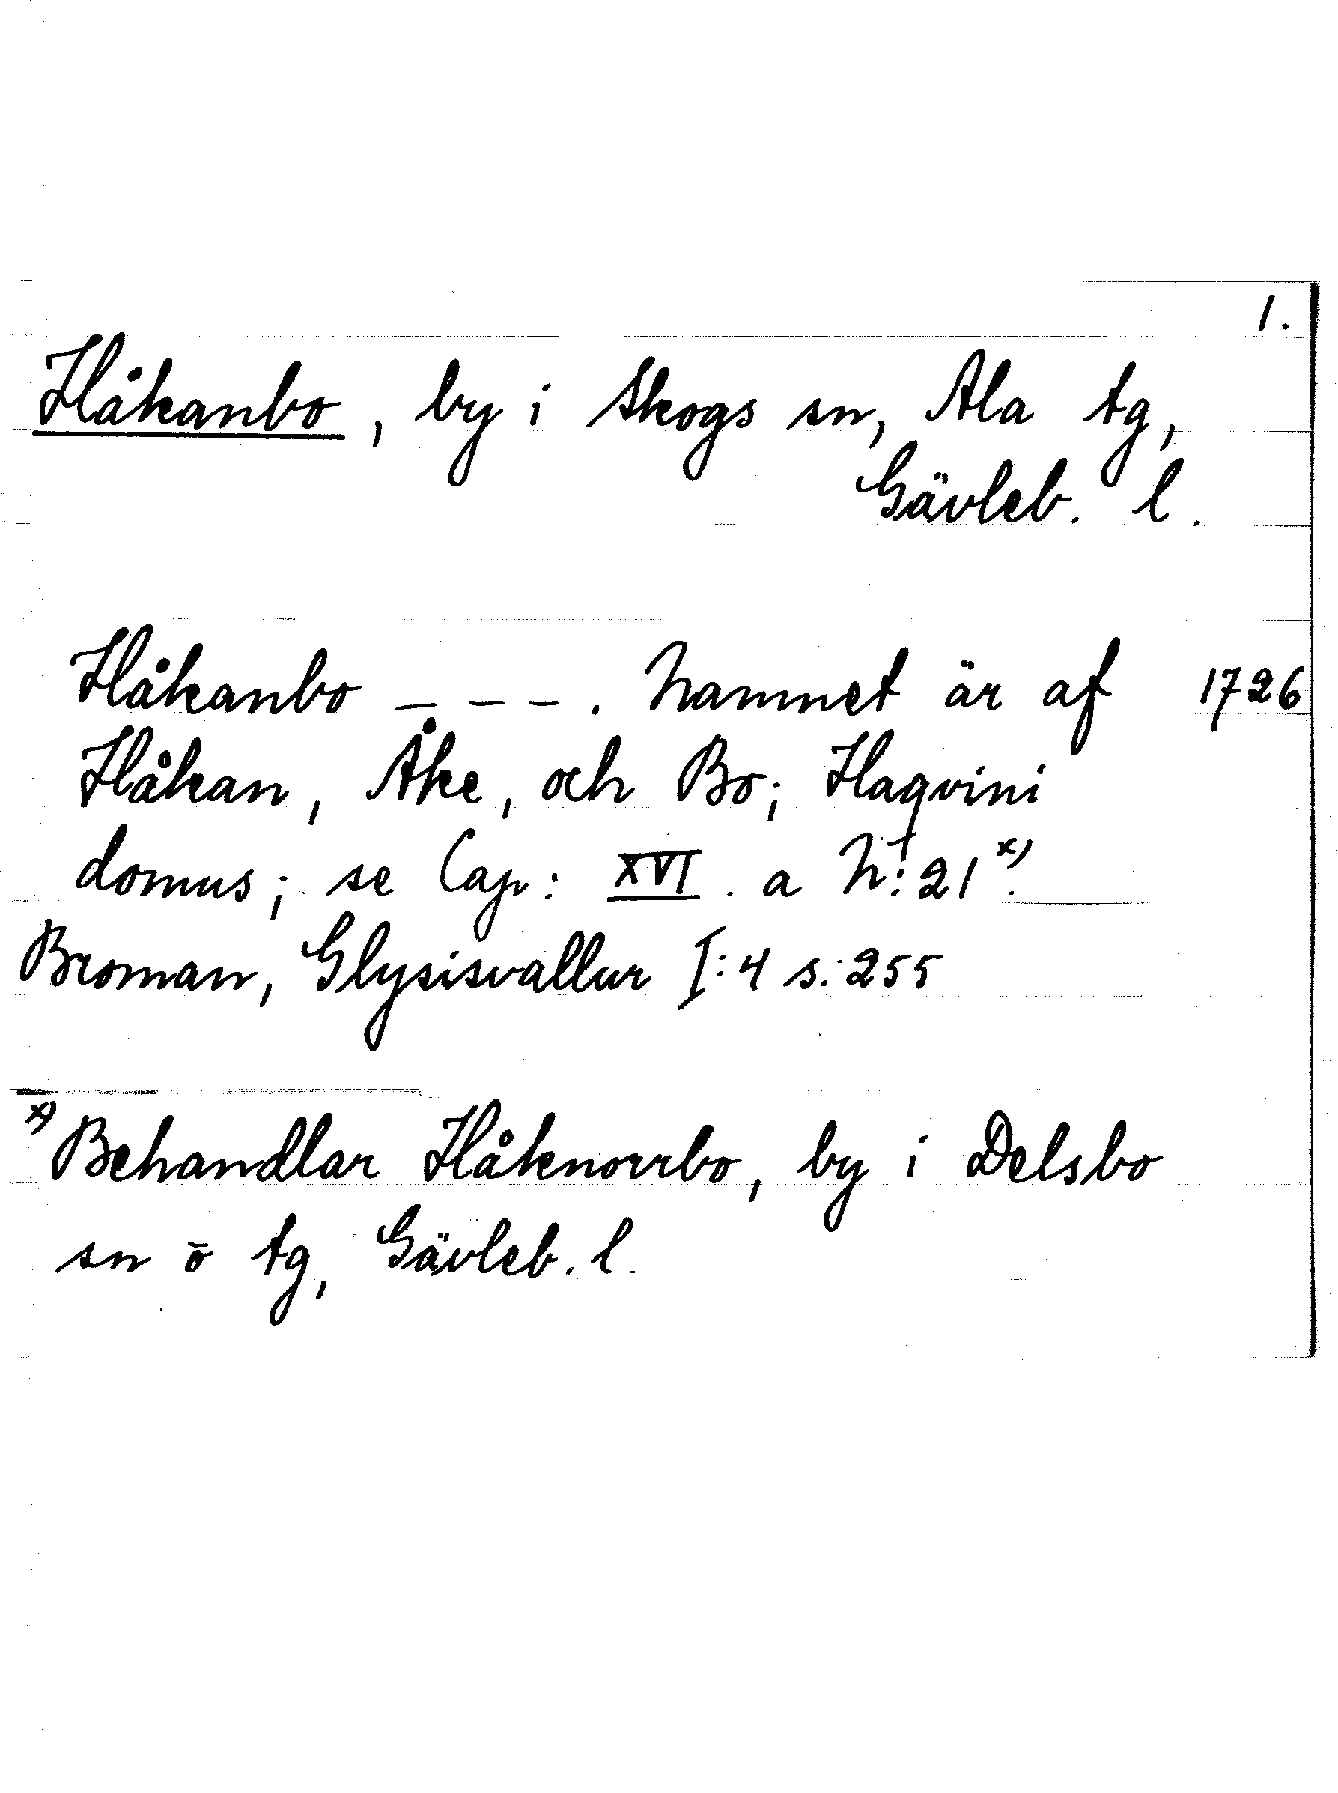 1.
Håkanbo, by i Skogs sn, Ala tg,
Gävleb. l.
Håkanbo _ _ _ . Namnet är af 1726
Håkan, Åke, och Bo; Haqvini
domus; se Cap: XVI. a N: 21 x).
Broman, Glysisvallur I:4 s. 255
x) Behandlar Håknorrbo, by i Delsbo
sn o tg, Gävleb. l.